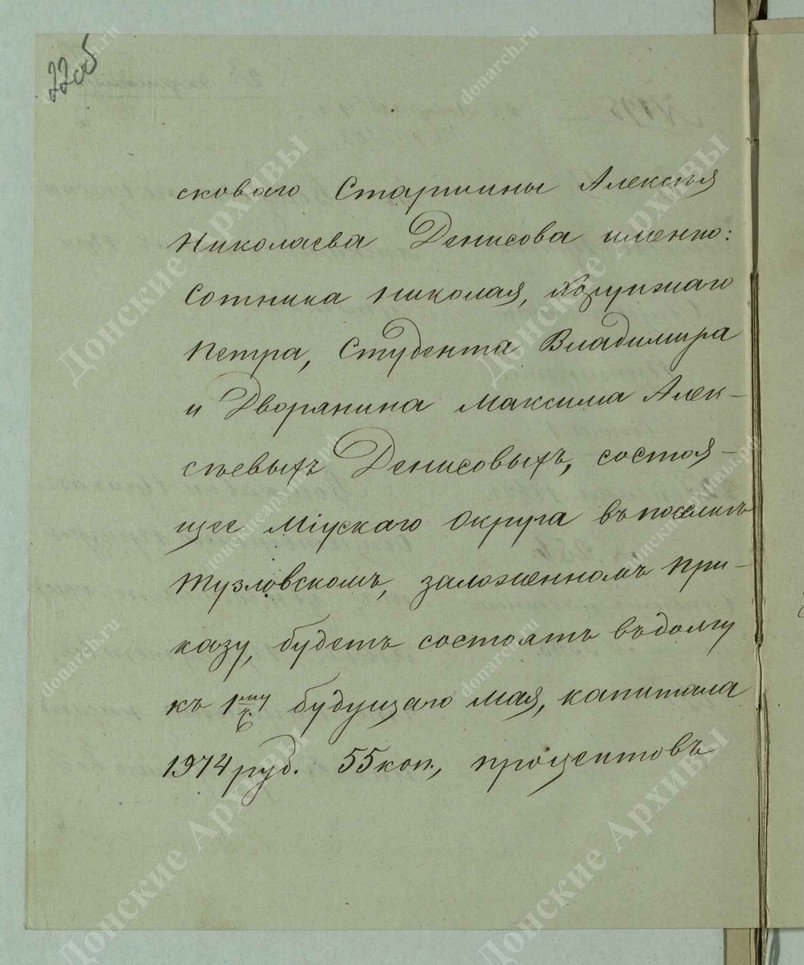 22об
сковаго Старшины Алексѣя
Николаева Денисова именно:
Сотника Николая, Хорунжаго
Петра, Студента Владимира
и Дворянина Максима Алек-
сѣевыхъ Денисовыхъ, состоя-
щее Міускаго Округа въ поселкѣ
Тузловскомъ, заложенномъ При-
казу, будетъ состоять въ долгу
къ 1му будущаго мая, капитала
1974 руб. 55 коп., процентовъ
Донские Архивы
donarch.ru